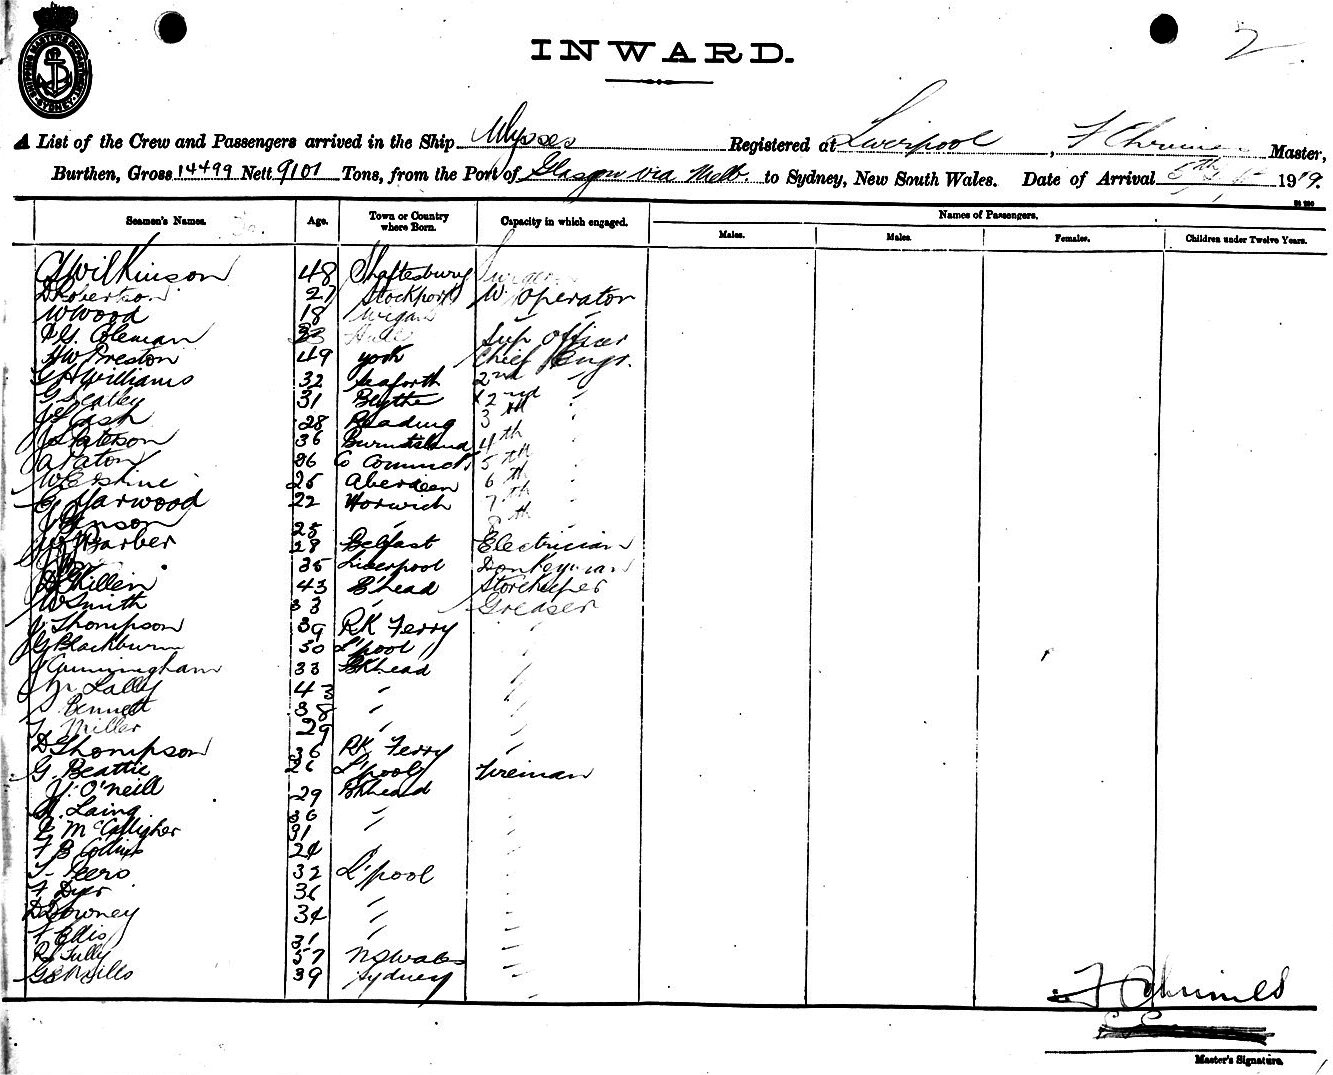 SHIPPING MASTER'S DEPARTMENT SYDNEY
2
INWARD.
A List of the Crew and Passengers arrived in the Ship Ulysses Registered at Liverpool, F Chrimes Master,
Burthen, Gross 14499 Nett 9101 Tons, from the Port of Glasgow via Melb. to Sydney, New South Wales. Date of Arrival 1919.
Names of Passengers.
Seamen's Names. Age. Town or Country where Born. Capacity in which engaged. Males. Males. Females. Children under Twelve Years.
Wilkinson 48 Shaftesbury Surgeon
D Roberton 27 Stockport W Operator
W Wood 18 Wigan "
G. Coleman 33 Hull Sup Officer
HW Preston 49 York Chief Engr.
G H Williams 32 Seaforth 2nd "
G Sealey 31 Blythe 2nd "
J Cash 28 Reading 3 "
J Paterson 36 Burntisland 4th "
A Paton 26 5th "
W Erskine 25 Aberdeen 6th "
G Harwood 22 Horwich 7th "
J Benson 25 " 8th "
Barber 28 Belfast Electrician
35 Liverpool Donkeyman
Killen 43 B'head Storekeeper
W Smith 33 " Greaser
J Thompson 39 RK Ferry "
J G Blackburn 50 L'pool "
J Cunningham 33 BKhead "
Lally 43 " "
S Bennett 38 " "
F Miller 29 " "
D Thompson 36 RK Ferry "
G. Beattie 26 L'pool Fireman
J. O'Neill 29 BKhead "
H. Laing 36 " "
McCalligher 31 "
F B Collins 24 " "
T Peers 32 L'pool "
F Dyer 36 " "
D Downey 34 " "
F Ellis 31 " "
R Tully 57 NSWales "
G Nills 39 Sydney "
F Chrimes
Master's Signature.